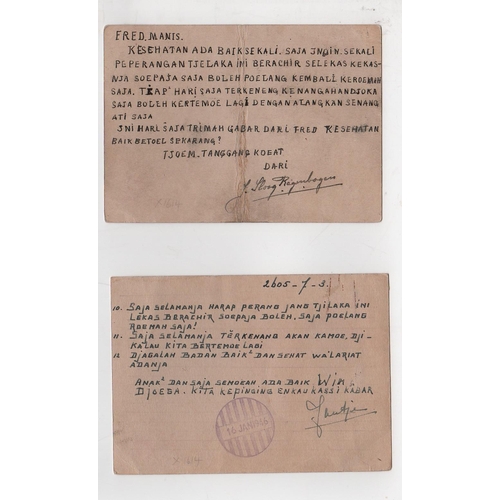 FRED. MANIS.
KESEHATAN ADA BAIK SEKALI. SAJA INGIN. SEKALI
PEPERANGAN TJELAKA INI BERACHIR SELEKAS KEKAS-
NJA SOEPAJA SAJA BOLEH POELANG KEMBALI KEROEMAH
SAJA. TIAP² HARI SAJA TERKENENG KENANGAHANDJOKA
SAJA BOLEH KERTEMOE LAGI DENGAN ALANGKAN SENANG
ATI SAJA
INI HARI SAJA TRIMAH GABAR DARI FRED KESEHATAN
BAIK BETOEL SEKARANG?
TJOEM. TANGGANG KOEAT
DARI
2605-7-3.
10. SAJA SELAMANJA HARAP PERANG JANG TJILAKA INI
LEKAS BERACHIR SOEPAJA BOLEH. SAJA POELANG
ROEMAH SAJA!
11. SAJA SELAMANJA TERKENANG AKAN KAMOE, DJI-
KALAU KITA BERTEMOE LAGI
12. DJAGALAH BADAN BAIK² DAN SEHAT WA'LAFIAT
ADANJA
ANAK² DAN SAJA SEMOEAH ADA BAIK WIM.
DJOEBA. KITA KEPINGING ENKAU KASSI KABAR
Jantje